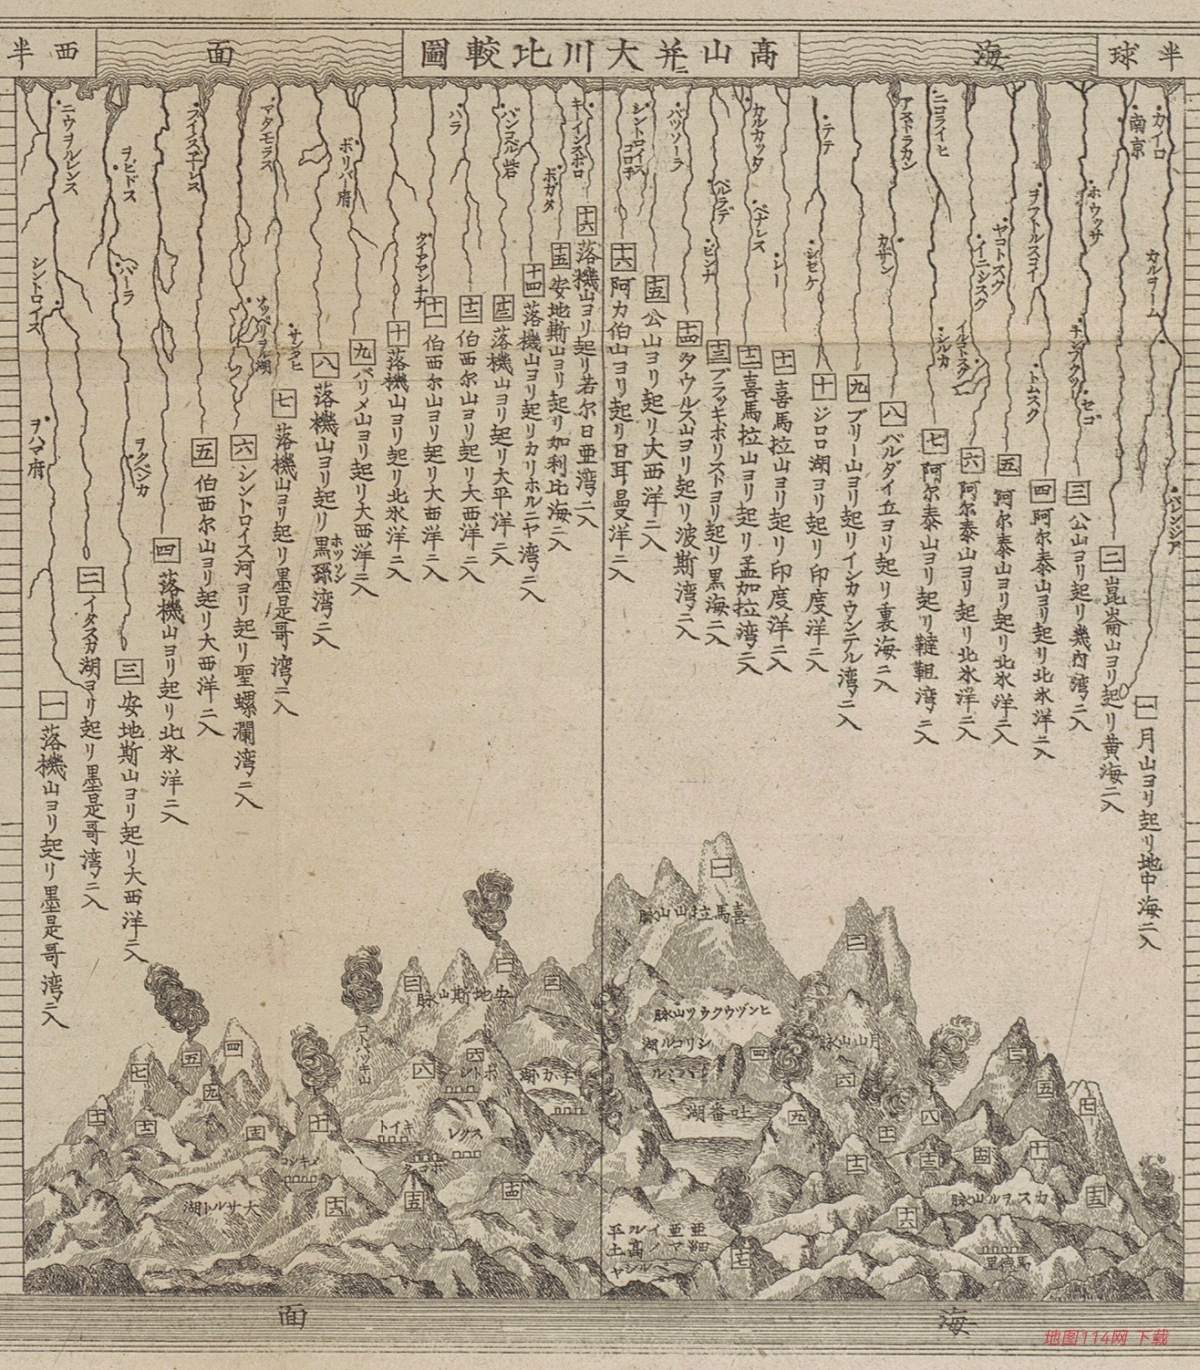 高山并ニ大川比較圖
半球
海
面
西半
カイロ
カルヲーム
一 月山ヨリ起リ地中海ニ入
南京
二 崑崙山ヨリ起リ黄海ニ入
ホウッサ
セゴ
三 公山ヨリ起リ幾內湾ニ入
ヲフトルスコイ
トムスク
四 阿尔泰山ヨリ起リ北氷洋ニ入
ヤコトスク
五 阿尔泰山ヨリ起リ北氷洋ニ入
イニシスク
六 阿尔泰山ヨリ起リ北氷洋ニ入
ニコライヒ
シルカ
七 阿尔泰山ヨリ起リ韃靼湾ニ入
アストラカン
カサン
八 バルダイ丘ヨリ起リ裏海ニ入
九 ブリー山ヨリ起リインカウンテル湾ニ入
テテ
シセケ
十 ジロロ湖ヨリ起リ印度洋ニ入
シー
十一 喜馬拉山ヨリ起リ印度洋ニ入
カルカッタ
ベナレス
十二 喜馬拉山ヨリ起リ孟加拉湾ニ入
ベルラデ
ビンナ
十三 ブラッキホリストヨリ起リ黒海ニ入
バッソーラ
十四 タウルス山ヨリ起リ波斯湾ニ入
シントロイス
十五 公山ヨリ起リ大西洋ニ入
ゴロ子
十六 阿力伯山ヨリ起リ日耳曼洋ニ入
キーインスボロ
十六 落機山ヨリ起リ若尔日亜湾ニ入
ボガタ
十五 安地斯山ヨリ起リ加利比海ニ入
十四 落機山ヨリ起リカリホルニヤ湾ニ入
バンコウル岩
十三 落機山ヨリ起リ大平洋ニ入
十二 伯西尔山ヨリ起リ大西洋ニ入
バラ
十一 伯西尔山ヨリ起リ大西洋ニ入
十 落機山ヨリ起リ北氷洋ニ入
ボリバ府
九 バリメ山ヨリ起リ大西洋ニ入
八 落機山ヨリ起リ黒孫湾ニ入
ホッソン
マタモラス
サンタヒ
七 落機山ヨリ起リ墨是哥湾ニ入
六 シントロイス河ヨリ起リ聖螺瀾湾ニ入
ブイスヱーレス
五 伯西尔山ヨリ起リ大西洋ニ入
四 落機山ヨリ起リ北氷洋ニ入
ヲビドス
バーラ
三 安地斯山ヨリ起リ大西洋ニ入
二 イタスカ湖ヨリ起リ墨是哥湾ニ入
ニウヲルレンス
シントロイス
ヲハマ府
一 落機山ヨリ起リ墨是哥湾ニ入
喜馬拉山山脉
ヒンヅウクウツ山脉
シリコル湖
吐番湖
月山山脉
カスヲル山脉
馬德里
亜細亜マイノルノ高平土
ペルシヤ
安地斯山脉
コトパッキ山
ポトシ
キイト
クスレ
ボコタ
メキシコ
大サルト湖
海
面
地图114网 下载